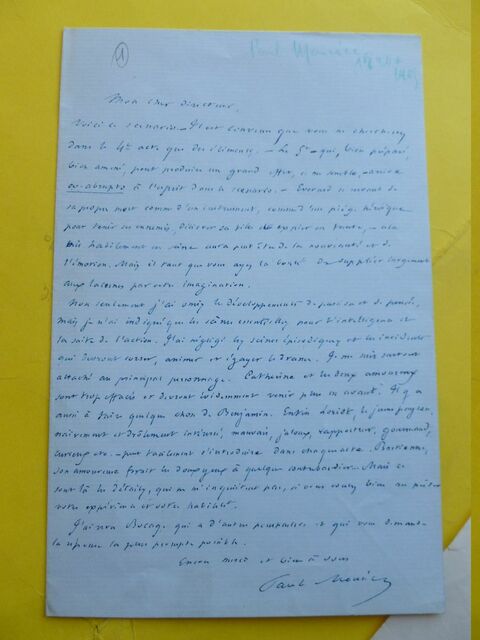 1
Paul Meurice
Mon cher directeur,
Voici ce scenario. Il est convenu que vous ne cherchiez
dans le 4me acte que des éléments. — Le 5e qui, bien préparé,
bien amené, peut produire un grand effet, ce me semble, arrive
ex-abrupto à l'esprit dans le scenario. —
sa propre mort comme d'un instrument, comme d'un piège héroïque
pour tenir son ennemi, délivrer sa fille et expier sa faute, —
très habilement en scène aura peut-être de la nouveauté et de
l'émotion. Mais il faut que vous ayez la bonté de suppléer largement
aux lacunes par votre imagination.
Non seulement j'ai omis les développements de passion et de pensée,
mais je n'ai indiqué que les scènes essentielles pour l'intelligence et
la suite de l'action. J'ai négligé les scènes épisodiques et les incidents
qui devront corser, animer et égayer le drame. Je me suis surtout
attaché au principal personnage. Catherine et les deux amoureux
sont trop effacés et devront évidemment venir plus en avant. Il y a
aussi à faire quelque chose de Benjamin. Enfin Loriot, le jeune paysan,
naïvement et drôlement intéressé, mauvais, jaloux, rapporteur, gourmand,
curieux etc. — peut facilement s'introduire dans chaque acte.
son amoureuse ferait les deux yeux à quelque contrebandier. Mais ce
sont là les détails, qui ne m'inquiètent pas, si vous voulez bien me prêter
votre expérience et votre habileté.
J'ai vu Bocage qui a d'autres et qui vous demande
la réponse la plus prompte possible.
Encore merci et bien à vous
Paul Meurice